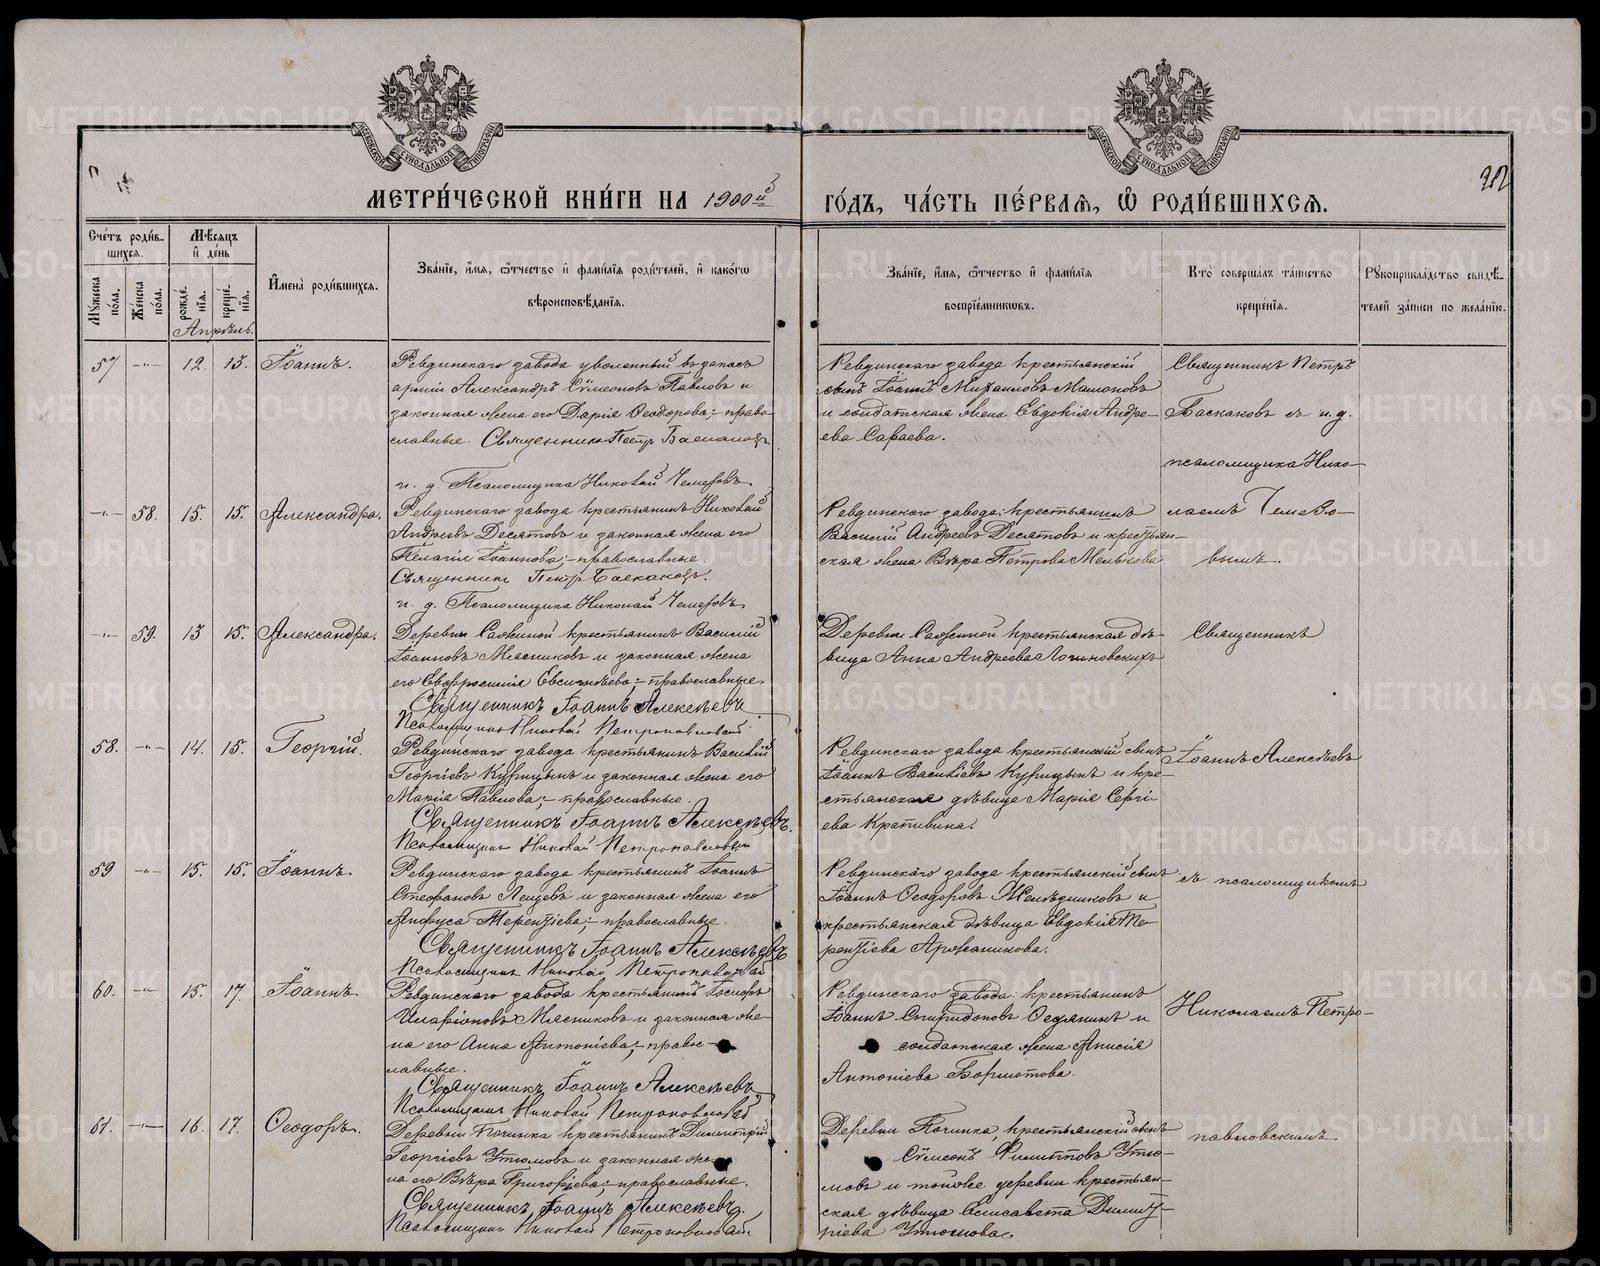 METRIKI.GASO-URAL.RU
МОСКОВСКОЙ СѴНОДАЛЬНОЙ ТИПОГРАФІИ
МЕТРИ́ЧЕСКОЙ КНИ́ГИ НА 1900й
ГО́ДЪ, ЧА́СТЬ ПЕ́РВАЯ, Ѡ҆ РОДИ́ВШИХСЯ.
Сче́тъ роди́в-
шихся.
Мѣ́сяцъ
и҆ де́нь
Му́жеска по́ла.
Же́нска по́ла.
рожде́нїя.
креще́нїя.
И҆мена̀ роди́вшихся.
Зва́нїе, и҆́мя, ѻ҆́тчество и҆ фами́лїя роди́телей, и҆ како́гѡ
вѣроисповѣ́данїя.
Зва́нїе, и҆́мя, ѻ҆́тчество и҆ фами́лїя
воспрїе́мниковъ.
Кто̀ соверша́лъ та́инство
креще́нїя.
Рꙋкоприкла́дство свидѣ́-
телей за́писи по жела́нїю.
Апрѣль.
57 -"- 12. 13. Іоаннъ.
Ревдинскаго завода уволенный въ запасъ
арміи Александръ Сѵмеоновъ Павловъ и
законная жена его Дарія Ѳеодорова; – право-
славные. Священникъ Петръ Баскаковъ
и. д. Псаломщика Николай Чемезовъ
Ревдинскаго завода крестьянскій
сынъ Іоаннъ Михаиловъ Мамоновъ
и солдатская жена Евдокія Андре-
ева Сараева.
Священникъ Петръ
Баскаковъ съ и. д.
псаломщика Нико-
-"- 58. 15. 15. Александра.
Ревдинскаго завода крестьянинъ Николай
Андреевъ Десятовъ и законная жена его
Пелагія Іоаннова; – православные.
Священникъ Петръ Баскаковъ.
и. д. Псаломщика Николай Чемезовъ
Ревдинскаго завода: крестьянинъ
Василій Андреевъ Десятовъ и крестьян-
ская жена Вѣра Петрова Мелькова.
лаемъ Чемезо-
вымъ.
-"- 59. 13 15. Александра.
Деревни крестьянинъ Василій
Іоанновъ Мясниковъ и законная жена
его Евфросинія; – православные.
Священникъ Іоаннъ Алексѣевъ
Псаломщикъ Николай Петропавловскій
Деревни крестьянская дѣ-
вица Анна Андреева Логиновскихъ
Священникъ
58. -"- 14. 15. Георгій.
Ревдинскаго завода крестьянинъ Василій
Георгіевъ Курицынъ и законная жена его
Марія Павлова; – православные.
Священникъ Іоаннъ Алексѣевъ.
Псаломщикъ Николай Петропавловскій
Ревдинскаго завода крестьянскій сынъ
Іоаннъ Василіевъ Курицынъ и кре-
стьянская дѣвица Марія Сергі-
ева Крапивина.
Іоаннъ Алексѣевъ
59 -"- 15. 15. Іоаннъ.
Ревдинскаго завода крестьянинъ Іоаннъ
Стефановъ и законная жена его
Анфуса Терентіева; – православные.
Священникъ Іоаннъ Алексѣевъ
Псаломщикъ Николай Петропавловскій
Ревдинскаго завода крестьянскій сынъ
Іоаннъ Ѳеодоровъ и
крестьянская дѣвица Евдокія Те-
рентіева Аржанникова.
съ псаломщикомъ
60. -"- 15. 17. Іоаннъ.
Ревдинскаго завода крестьянинъ Іосифъ
Иларіоновъ Мясниковъ и законная же-
на его Анна Антоніева; – право-
славные.
Священникъ Іоаннъ Алексѣевъ
Псаломщикъ Николай Петропавловскій
Ревдинскаго завода: крестьянинъ
Іоаннъ Спиридоновъ и
солдатская жена Анисія
Антоніева Бормотова.
Николаемъ Петро-
61. -"- 16. 17. Ѳеодоръ.
Деревни Починка крестьянинъ Димитрій
Георгіевъ Утюмовъ и законная же-
на его Вѣра Григоріева; – православные.
Священникъ Іоаннъ Алексѣевъ.
Псаломщикъ Николай Петропавловскій.
Деревни Починка крестьянскій сынъ
Сѵмеонъ Филипповъ Утю-
мовъ и тойже деревни крестьян-
ская дѣвица Елисавета Димит-
ріева Утюмова.
павловскимъ.